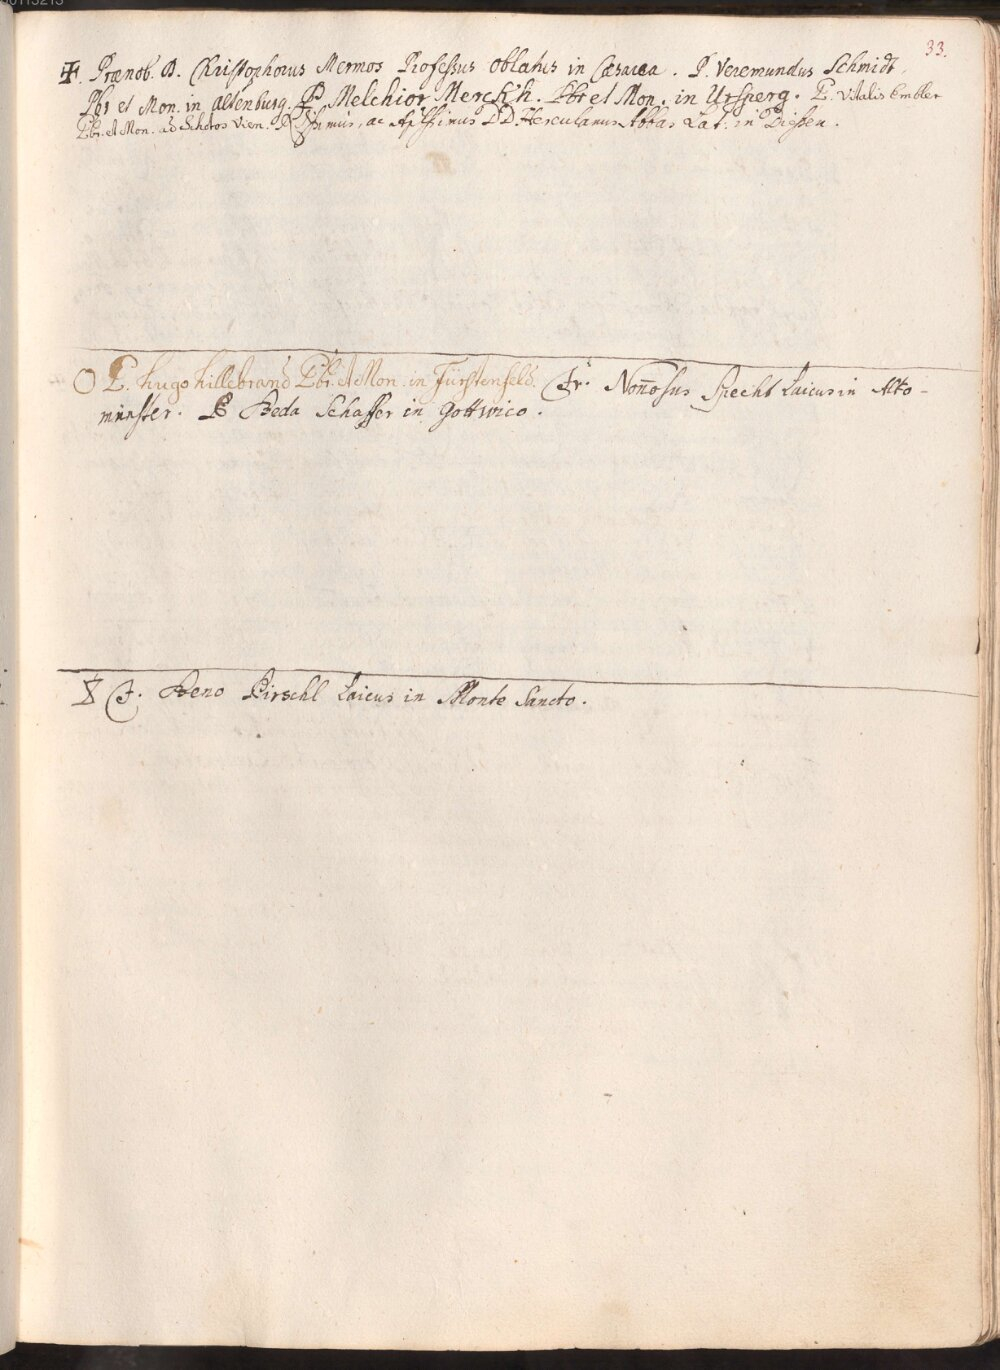 33.
✠. Prænob. D. Christophorus Mermos Professus oblatus in Cæsarea. P. Veremundus Schmidt,
Pbr et Mon. in Altenburg. P. Melchior Merckh. Pbr et Mon. in Ursperg. P. Vitalis Embler
Pbr. et Mon. ad Schotos Vien. Rdissimus, ac Aplissimus DD. Herculanus Abbas Lat: in Diessen.
O P. Hugo Hillebrand Pbr. et Mon. in Fürstenfeld. Fr. Nonosus Specht Laicus in Alto-
münster. P Beda Schaffer in Gottwico.
F. Beno Pirschl Laicus in Monte Sancto.